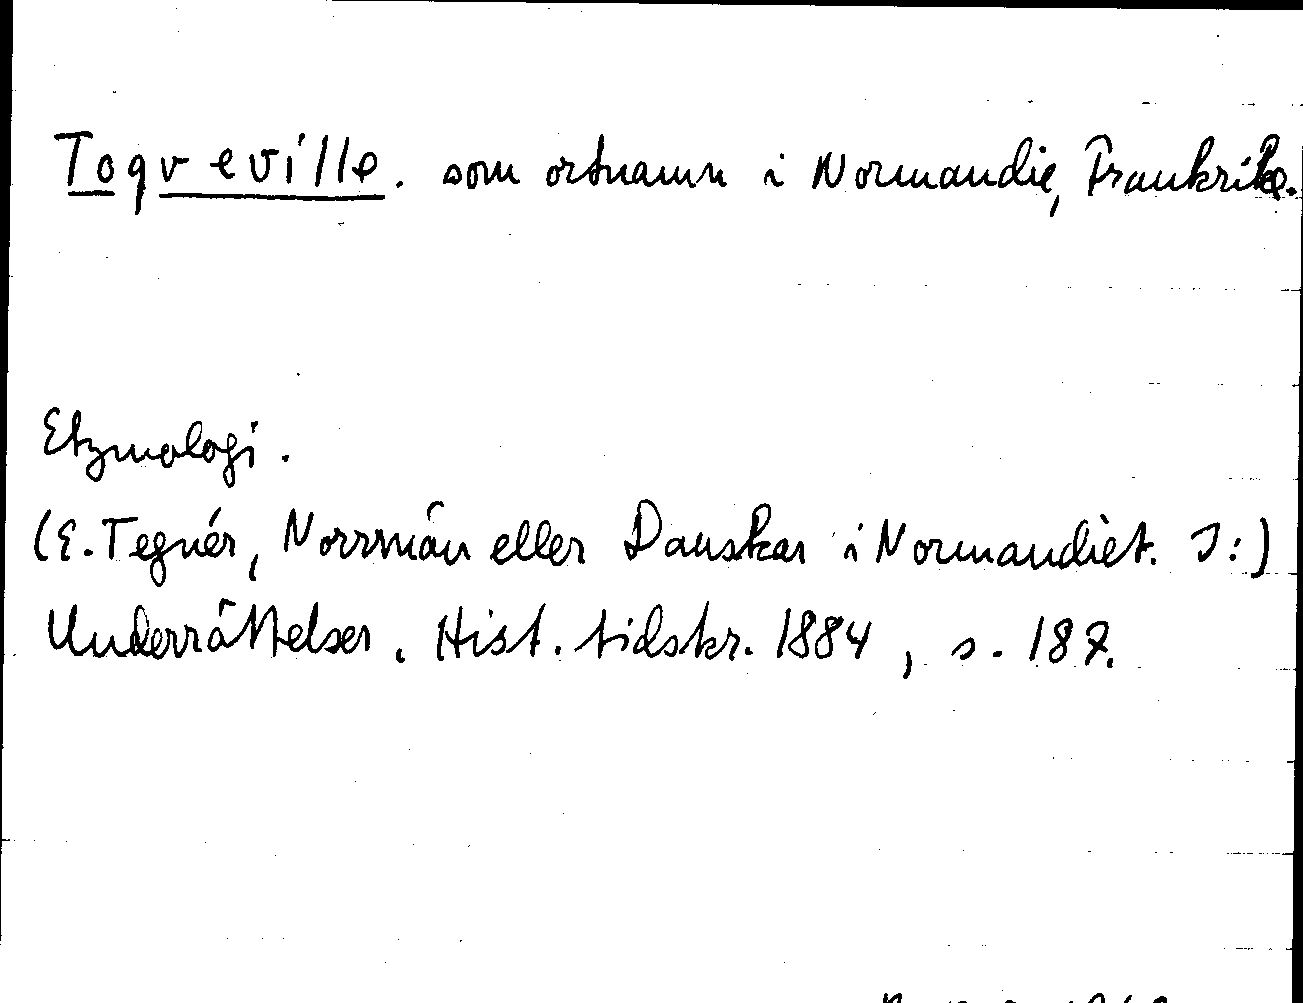 Toqveville. som ortnamn i Normandie, Frankrike.
Etymologi.
(E. Tegnér, Norrmän eller Danskar i Normandiet. I:)
Underrättelser. Hist. tidskr. 1884, s. 187.